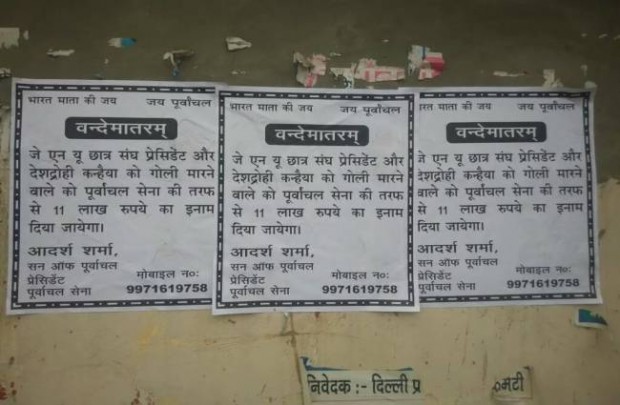 भारत माता की जय जय पूर्वांचल
वन्देमातरम्
जे एन यू छात्र संघ प्रेसिडेंट और
देशद्रोही कन्हैया को गोली मारने
वाले को पूर्वांचल सेना की तरफ
से 11 लाख रुपये का इनाम
दिया जायेगा।
आदर्श शर्मा,
सन ऑफ पूर्वांचल
प्रेसिडेंट मोबाइल न०:
पूर्वांचल सेना 9971619758
भारत माता की जय जय पूर्वांचल
वन्देमातरम्
जे एन यू छात्र संघ प्रेसिडेंट और
देशद्रोही कन्हैया को गोली मारने
वाले को पूर्वांचल सेना की तरफ
से 11 लाख रुपये का इनाम
दिया जायेगा।
आदर्श शर्मा,
सन ऑफ पूर्वांचल
प्रेसिडेंट मोबाइल न०:
पूर्वांचल सेना 9971619758
रत माता की जय जय पूर्वांचल
वन्देमातरम्
जे एन यू छात्र संघ प्रेसिडेंट और
देशद्रोही कन्हैया को गोली मारने
वाले को पूर्वांचल सेना की तरफ
से 11 लाख रुपये का इनाम
दिया जायेगा।
आदर्श शर्मा,
सन ऑफ पूर्वांचल
प्रेसिडेंट मोबाइल न०:
पूर्वांचल सेना 9971619758
निवेदक :- दिल्ली प्र मटी